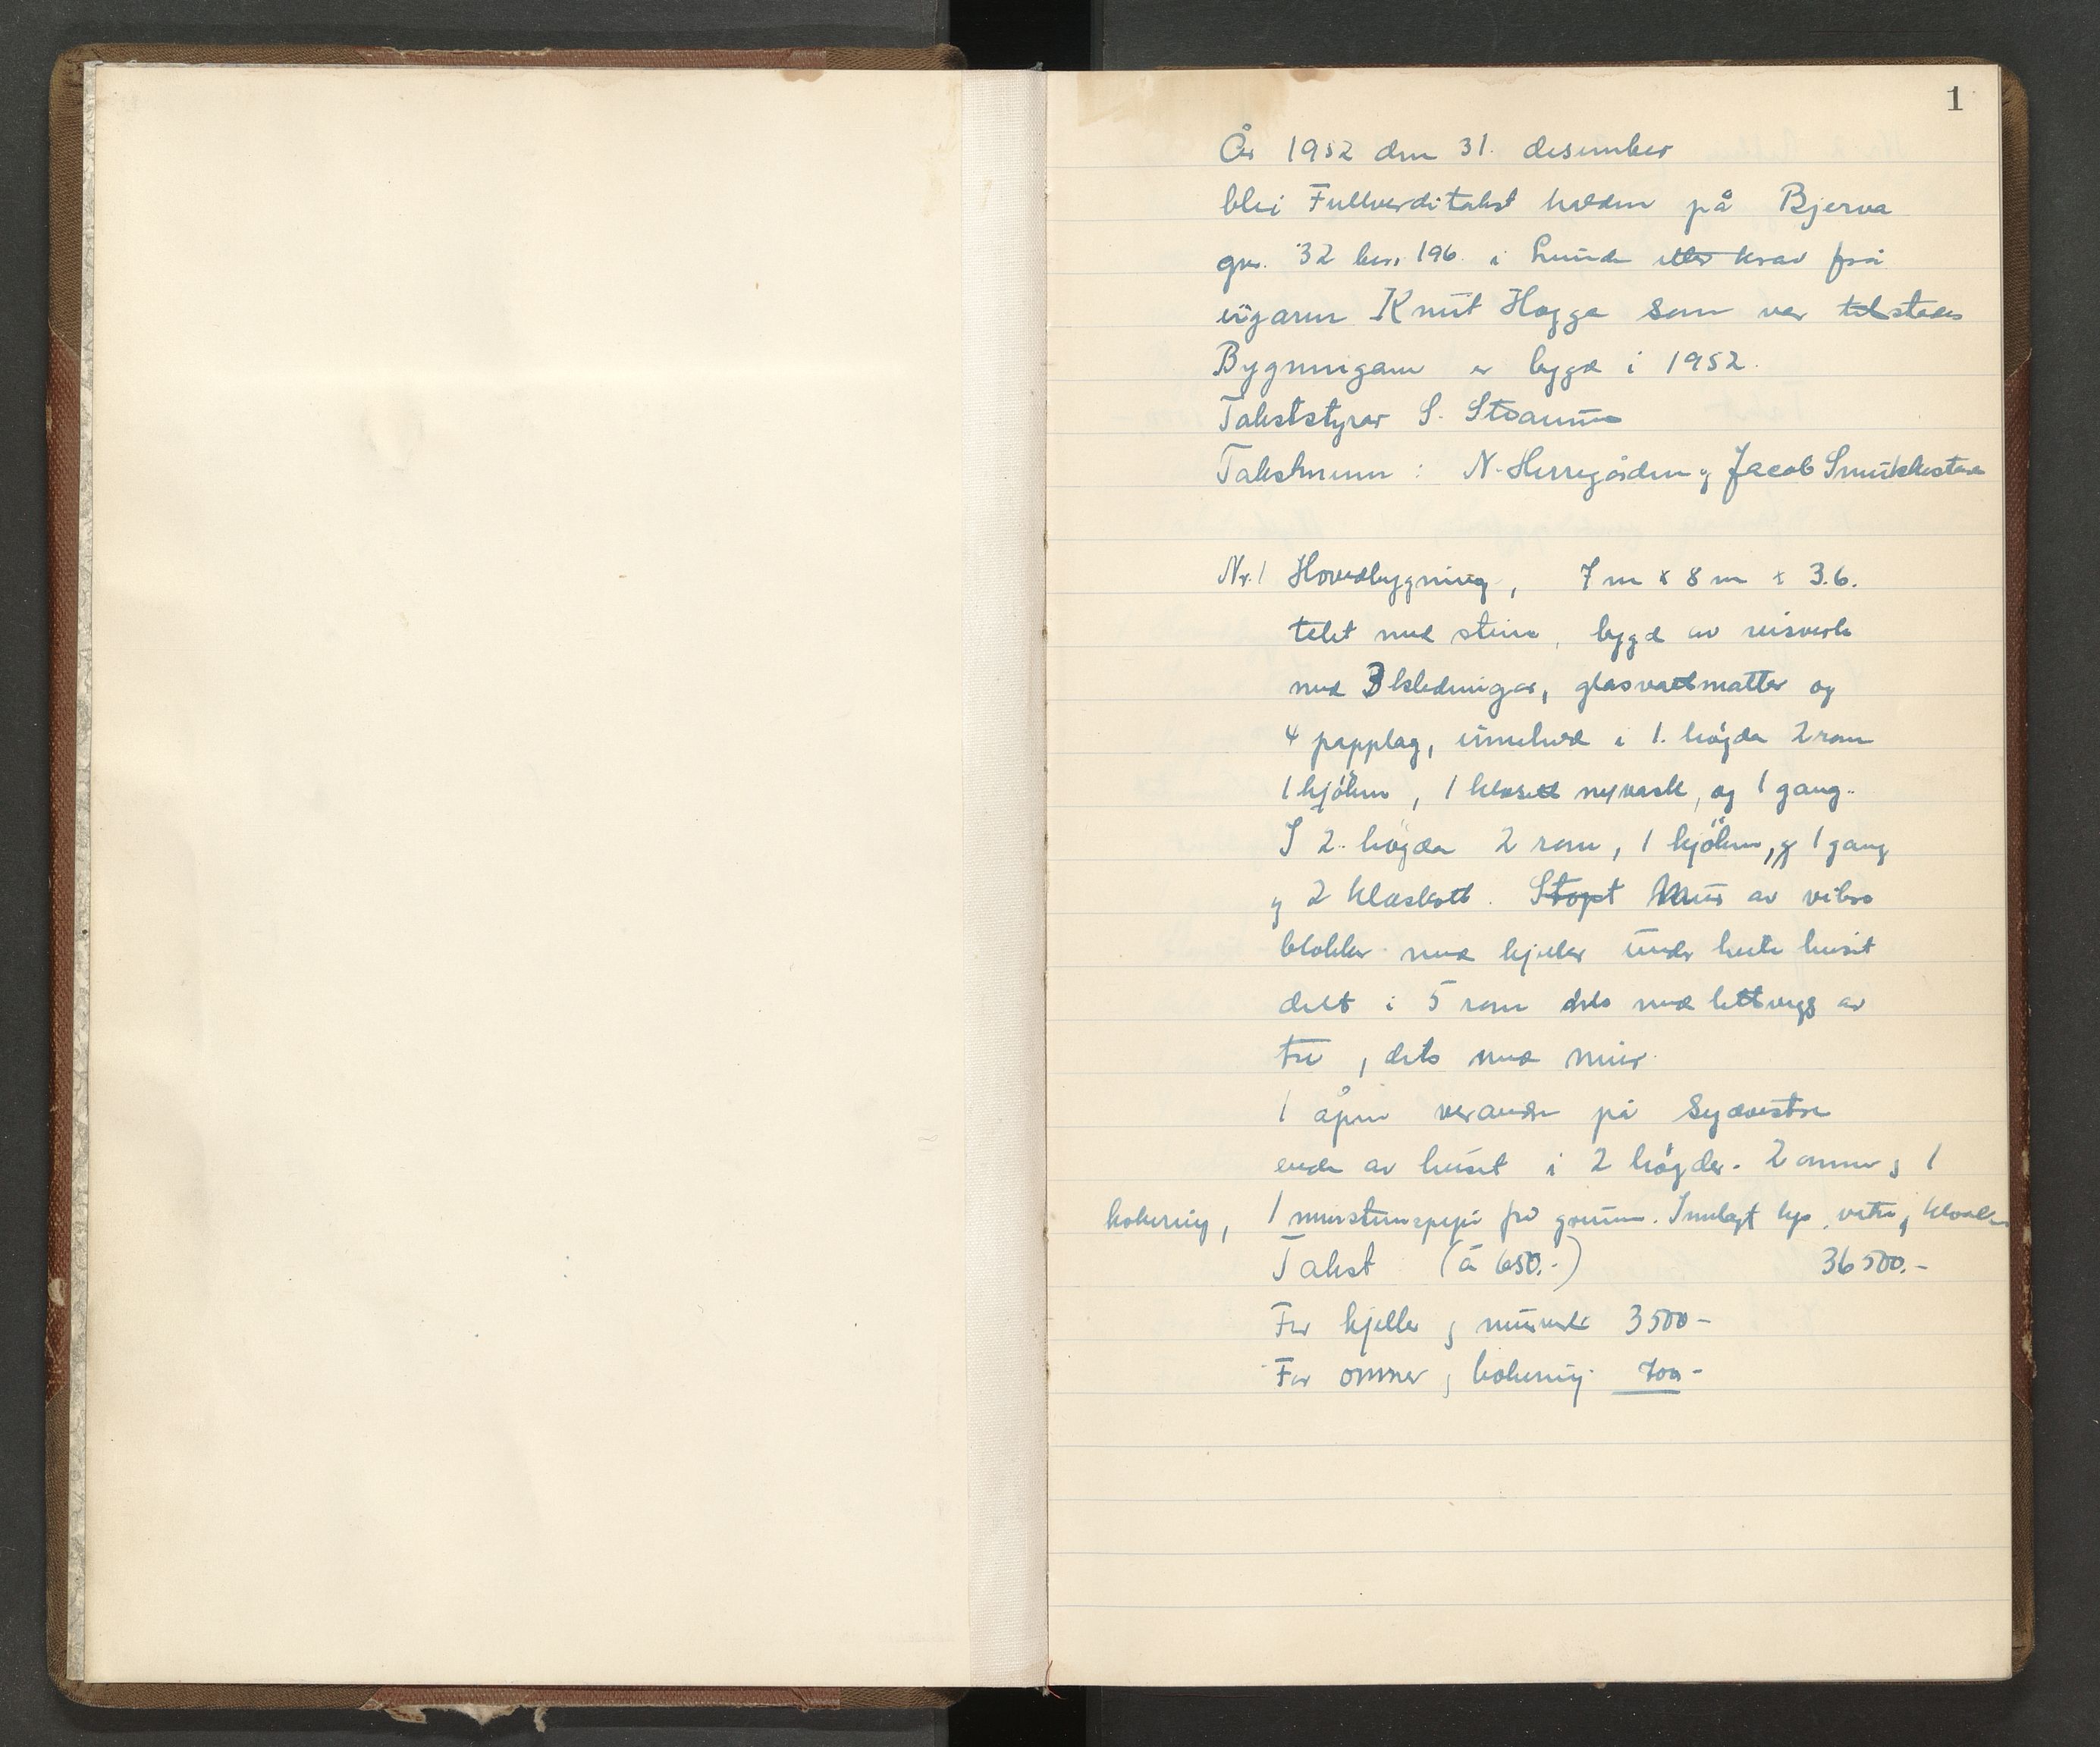 1
År 1952 den 31. desember
blei Fullverditakst halden på Bjerva
gnr. 32 bnr. 196 i Lunde etter krav frå
eigaren Knut Hogga som var tilstades
Bygningane er bygd i 1952.
Takststyrar S. Straume
Takstmenn : N. Herregården og Jacob
Nr. 1 Hovedbygning, 7 m x 8 m x 3.6.
tekt med stein, bygd av reisverk
med 3 kledningar, glasvattmatter og
4 papplag, inneheld i 1. høgda 2 rom
1 kjøken, 1 klosett m/vask, og 1 gang.
I 2. høgda 2 rom, 1 kjøken, og 1 gang
og 2 kleskott. Støpt Mur av vibro
blokker med kjeller under heile huset
delt i 5 rom dels med lettvegg av
tre, dels med mur.
1 åpen veranda på sydvestre
ende av huset i 2 høgder. 2 omner og 1
kokering, 1 mursteinspipe frå grunnen. Innlagt lys, vatn og kloakk
Takst (á 650.-) 36500.-
For kjeller og murverk 3500-
For omner og kokering 700-